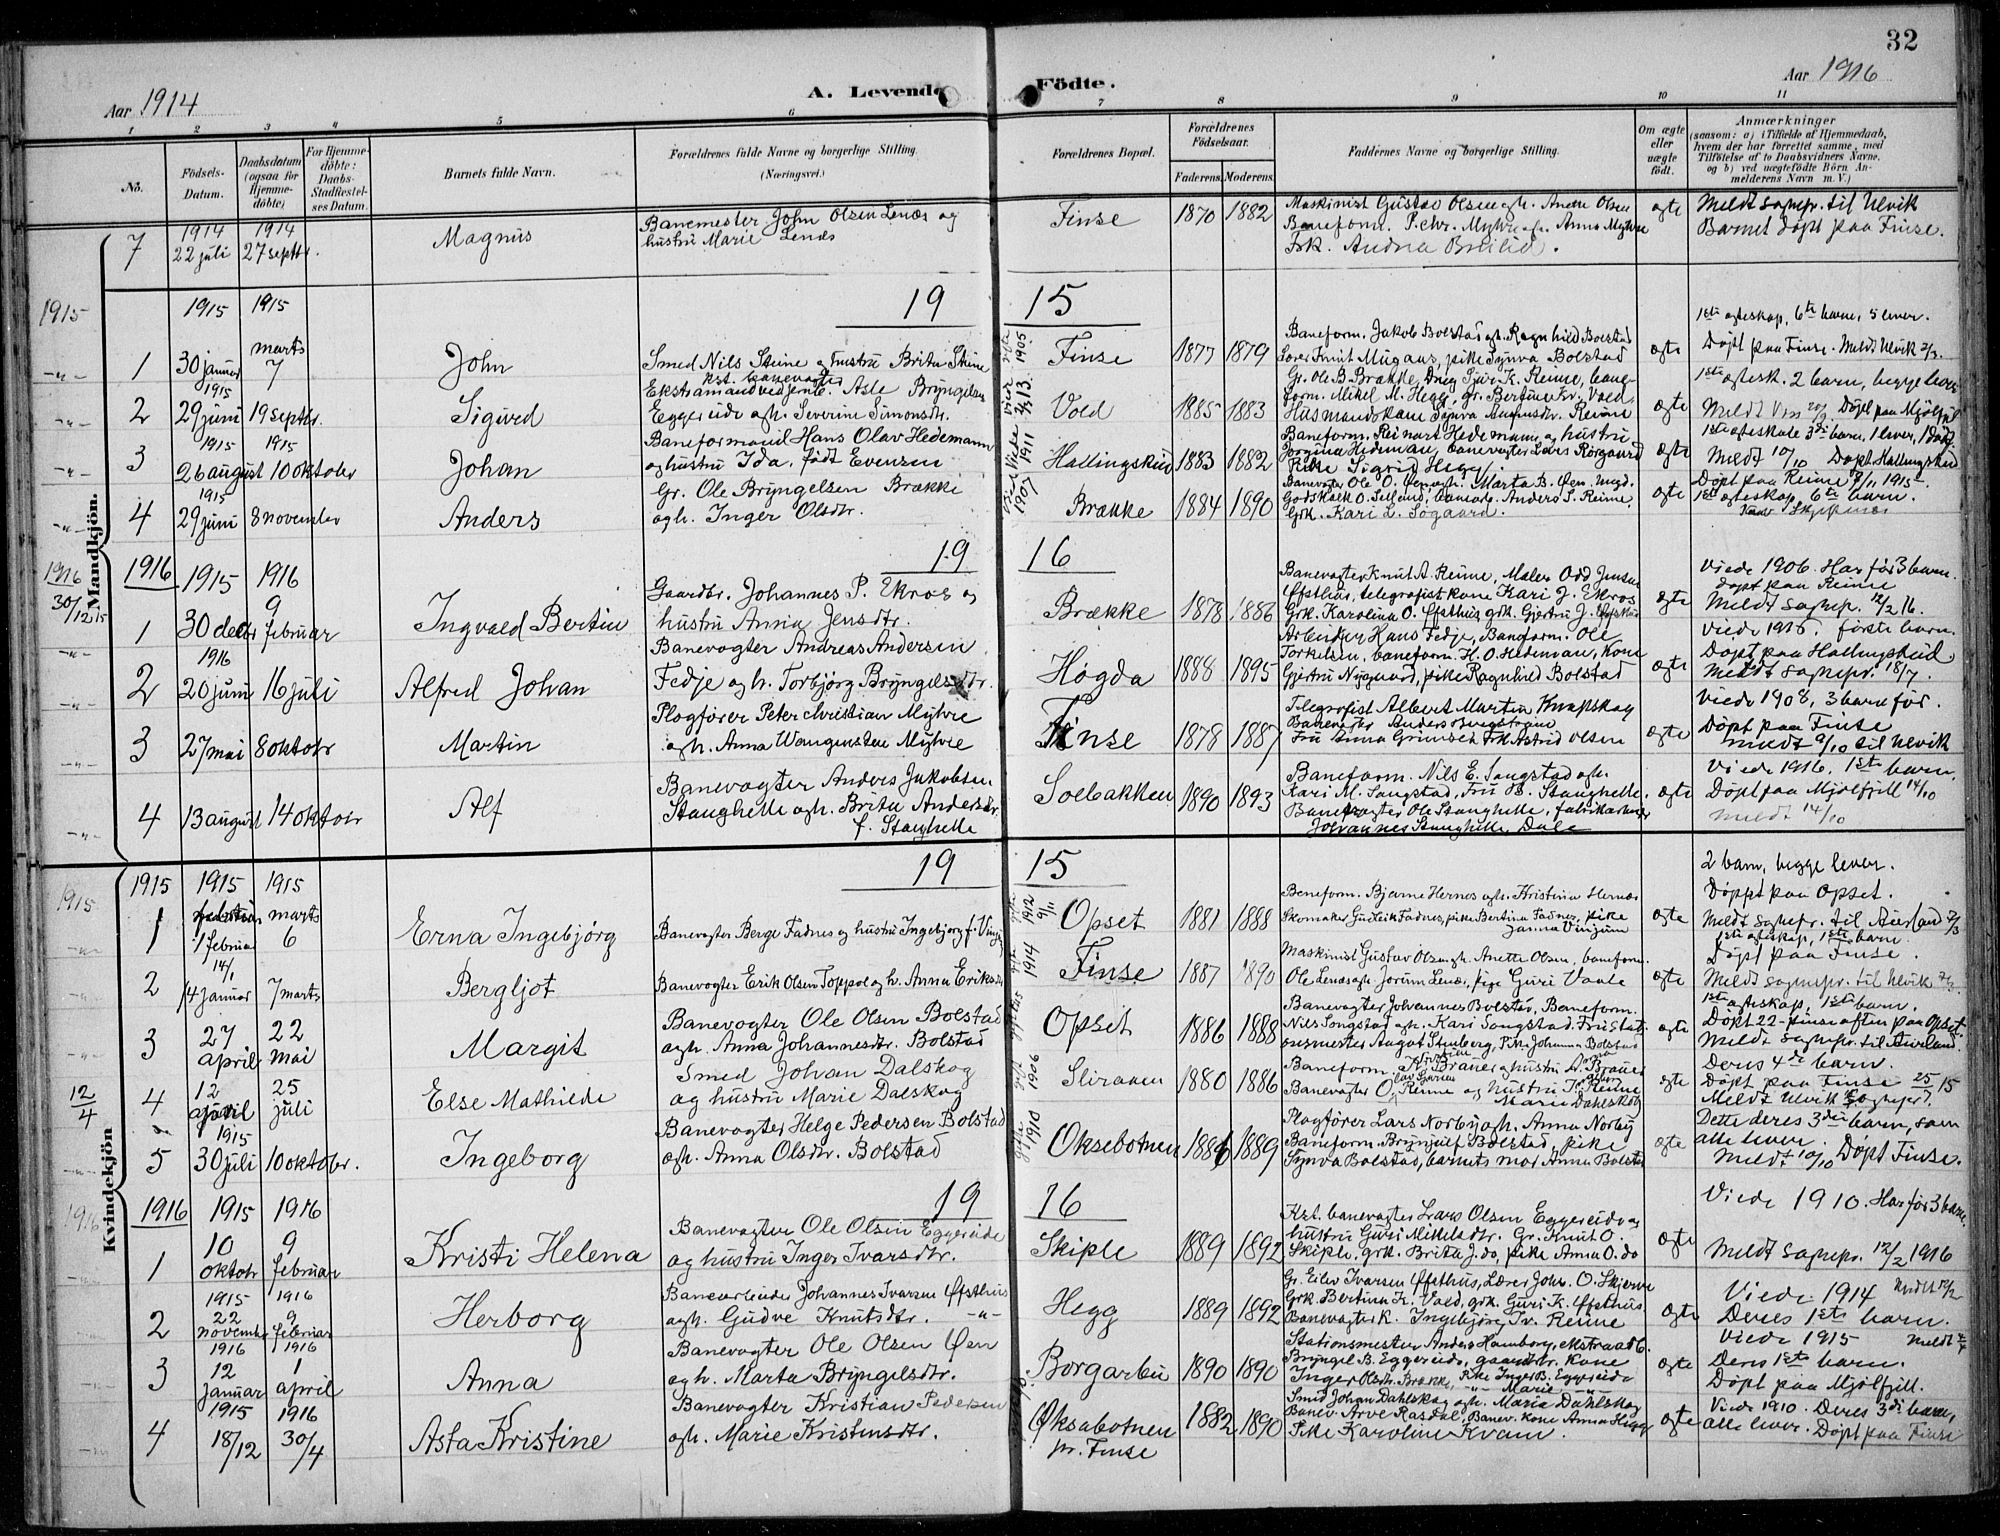 32
Aar 1914
A. Levende Födte.
Aar 1916
1 2 3 4 5 6 7 8 9 10 11
No.
Födsels-Datum.
Daabsdatum (ogsaa for Hjemme-döbte)
For Hjemme-döbte: Daabs-Stadfæstel-ses Datum.
Barnets fulde Navn.
Forældrenes fulde Navne og borgerlige Stilling. (Næringsvei.)
Forældrenes Bopæl.
Forældrenes Födselsaar.
Faderens. Moderens.
Faddernes Navne og borgerlige Stilling.
Om ægte eller uægte födt.
Anmærkninger
(saasom: a) i Tilfælde af Hjemmedaab, hvem der har forrettet samme, med Tilföielse af to Daabsvidners Navne, og b) ved uægtefödte Börn An-melderens Navn m. V.)
Mandkjön.
7
1914 22 juli
1914 27 septbr.
Magnus
Banemester John Olsen Lenæs og
hustru Marie Lenæs
Finse
1870 1882
Maskinist Gustav Olsen ogh. Anette Olsen
Baneform. Petr. Myhre ogh. Anna Myhre
Frk.
ægte
Meldt sognepr. til Ulvik
Barnet døpt paa Finse.
1915
1915 1915
19 15
1ste ægteskap, 6te barn, 5 lever.
1
30 januar
marts 7
John
Smed Nils Steine og hustru Brita Steine
Finse
1877 1879
Baneform. Jakob Bolstad ogh. Ragnhild Bolstad
ægte
Døpt paa Finse. Meldt Ulvik
2
1915 29 juni
19 septbr.
Sigurd
Eggereide ogh. Severine Simonsdtr.
Vold
1885 1883
ægte
1ste ægtesk. 2 barn, begge lever
3
1915 26 august
1915 10 oktober
Johan
Baneformand Hans Olav Hedemann
og hustru Ida, født Evensen
Hallingskeid
1883 1882
Baneform. Reinart Hedemann og hustru
Jorgina Hedeman, banevogter Lars Rorgaard
Pike Sigrid Hegg.
ægte
Meldt 10/10 Døpt Hallingskeid
4
1915 29 juni
8 november
Anders
Gr. Ole Bryngelsen Brække
ogh. Inger Olsdtr.
Brække
1884 1890
Grk. Kari L. Søgaard.
ægte
Døpt paa Reime 8/11 1915
1ste ægteskap, 6te barn.
1916 30/12 15
1916 1915 1916
19 16
1
30 decbr
9 februar
Ingvald Bertin
Gaardbr. Johannes P. Ekros og
hustru Anna Jensdtr.
Brække
1878 1886
Banevogter Knut A. Reime, Maler Odd Jensen
Øfsthus, telegrafist kone Kari J. Ekros
Grk. Karolina O. Øfsthus grk. Gjertru J. Øfsthus
ægte
Viede 1906. Har før 3 barn.
Døpt paa Reime
Meldt sognepr. 12/2 16.
2
1916 20 juni
16 juli
Alfred Johan
Banevogter Andreas Andersen
Fedje og h. Torbjørg Bryngelsdtr.
Høgda
1888 1895
Arbeider Hans Fedje, Baneform. Ole
Torkelsen, baneform. H. O. Hedeman, Kone
Gjertru Nygaard, pike Ragnhild Bolstad
ægte
Viede 1916. første barn.
Døpt paa Hallingskeid
Meldt sognepr. 18/7.
3
27 mai
8 oktobr
Martin
Plogfører Peter Christian Myhre
ogh. Anna Wangensteen Myhre
Finse
1878 1887
Telegrafist Albert Martin Knapskog
Fru Anna Grimsch Frk Astrid Olsen
ægte
Viede 1908, 3 barn før.
Døpt paa Finse
meldt 9/10 til Ulvik
4
13 august
14 oktobr
Alf
Banevogter Anders Jakobsen
Stanghelle ogh. Brita Andersdtr.
f. Stanghelle
Solbakken
1890 1893
Baneform. Nils E. Sangstad ogh.
Kari M. Sangstad, Fru B. Stanghelle.
Banevogter Ole Stanghelle, fabrikarbeider
Johannes Stanghelle, Dale
ægte
Viede 1916. 1ste barn.
Døpt paa Mjølfjell 14/10
Meldt 14/10
Kvindekjön
1915
1915 1915 1915
19 15
1
1 februar
marts 6
Erna Ingebjørg
Banevogter Berge Fadnes og hustru Ingebjørg f. Vinje
gift 9/11 1912
Opset
1881 1888
Baneform. Bjarne Hernes ogh. Kristina Hernes
Skomaker Gudleik Fadnes, pike Bertina Fadnes, pike
ægte
2 barn, begge lever.
Døpt paa Opset.
Meldt sognepr. til Aurland
2
14/1
14 januar
7 marts
Bergljot
Banevogter Erik Olsen Toppol og h. Anna Eriksdtr
gift 1914
Finse
1887 1890
Maskinist Gustav Olsen ogh. Anette Olsen, baneform.
Ole Lenæs ogh. Jorunn Lenæs, pige Guri Vaale
ægte
1ste ægteskap, 1ste barn.
Døpt paa Finse.
Meldt sognepr. til Ulvik
3
27 april
22 mai
Margit
Banevogter Ole Olsen Bolstad
ogh. Anna Johannesdtr. Bolstad
Opset
1886 1888
Banevogter Johannes Bolstad, Baneform.
Nils Songstad ogh. Kari Songstad. Fru Stati-
onsmester August Stenberg, Pike Johanna Bolstad
ægte
1ste ægteskap, 1ste barn.
Døpt 22-pinseaften paa Opset.
Meldt sognepr. til Aurland.
12/4
4
12 april
25 juli
Else Mathilde
Smed Johan Dalskog
og hustru Marie Dalskog
gift 1906
Sliraaen
1880 1886
Marie Dahlskog
ægte
Deres 4de barn.
Døpt paa Finse 25/7 15
Meldt Ulvik sognepr.
5
1915 30 juli
10 oktobr.
Ingeborg
Banevogter Helge Pedersen Bolstad
ogh. Anna Olsdtr. Bolstad
gifte 1910
Oksebotnen
1886 1889
Plogfører Lars Norby ogh. Anna Norby
Baneform. Brynjulf Bolstad, pike
Synva Bolstad, barnets mor Anna Bolstad
ægte
Dette deres 3die barn, som
alle lever.
Meldt 10/10 Døpt Finse.
1916
1916 1915 1916
19 16
1
10 oktobr
9 februar
Kristi Helena
Banevogter Ole Olsen Eggereide
og hustru Inger Ivarsdtr.
Skiple
1889 1892
Kst. banevogter Lars Olsen Eggereide og
hustru Guri Mikelsdtr. Gr. Knut O.
Skiple, grk. Brita J. do, pike Anna O. do
ægte
Viede 1910. Har før 3 barn.
Meldt sognepr. 12/2 1916
2
1915 22 november
1916 9 februar
Herborg
Banearbeider Johannes Ivarsen Øfsthus
ogh. Gudve Knutsdtr. -"-
Hegg
1889 1892
Gr. Eilev Ivarsen Øfsthus, Lærer Johs. O. Skjerve
Grk. Bertina K. Vold, grk. Guri K. Øfsthus
Banevogter k. Ingebjørg Iv. Reime
ægte
Viede 1914 Meldt 12/2
Deres 1ste barn.
3
1916 12 januar
1916 1 april
Anna
Banevogter Ole Olsen Øen
ogh. Marta Bryngelsdtr.
Borgarbu
1890 1890
Stationsmester Anders Hamborg, ekstraarb.
Bryngel B. Eggereide, gaardbr. Kone
Inger Olsdtr. Brække, Pike Inger B. Eggereide
-"- Marie -"-
ægte
Viede 1915
Deres 1ste barn.
Døpt paa Mjølfjell.
4
1915 18/12
1916 30/4
Asta Kristine
Banevogter Kristian Pedersen
ogh. Marie Kristensdtr.
Øksabotnen
pr. Finse
1882 1890
Smed Johan Dahlskog ogh. Maria Dahlskog
Banev. Arve Rasdal, Banev. Kone Anna Hegg
Pike Karoline Kvam.
ægte
Viede 1910. Deres 3die barn,
alle lever. Døpt paa Finse